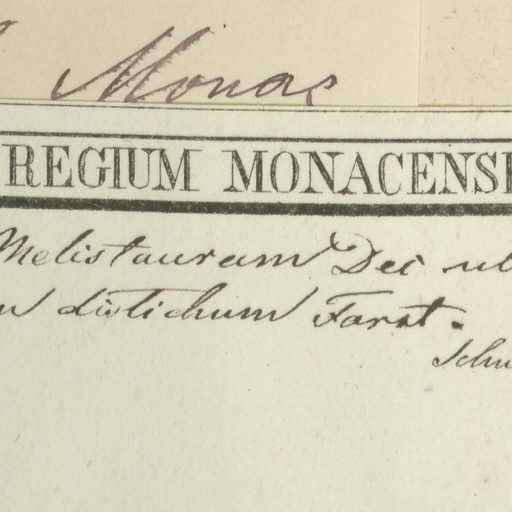 Monac
REGIUM MONACENSE
Melistaurum Dei
distichum Farat.
Schw